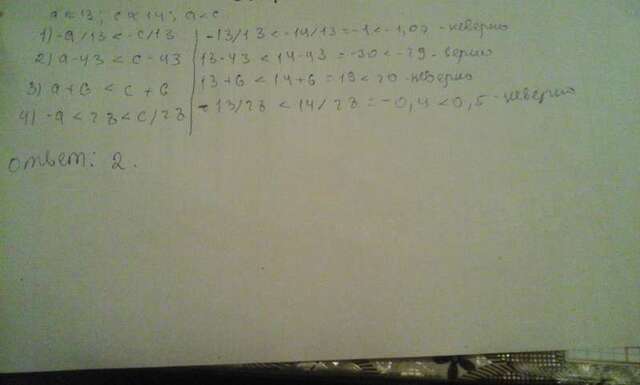 a = 13; c = 14; a < c
1) -a/13 < -c/13 | -13/13 < -14/13 = -1 < -1,07 - неверно
2) a-43 < c-43 | 13-43 < 14-43 = -30 < -29 - верно
3) a+6 < c+6 | 13+6 < 14+6 = 19 < 20 - неверно
4) -a < 28 < c/28 | -13/28 < 14/28 = -0,4 < 0,5 - неверно
ответ: 2.